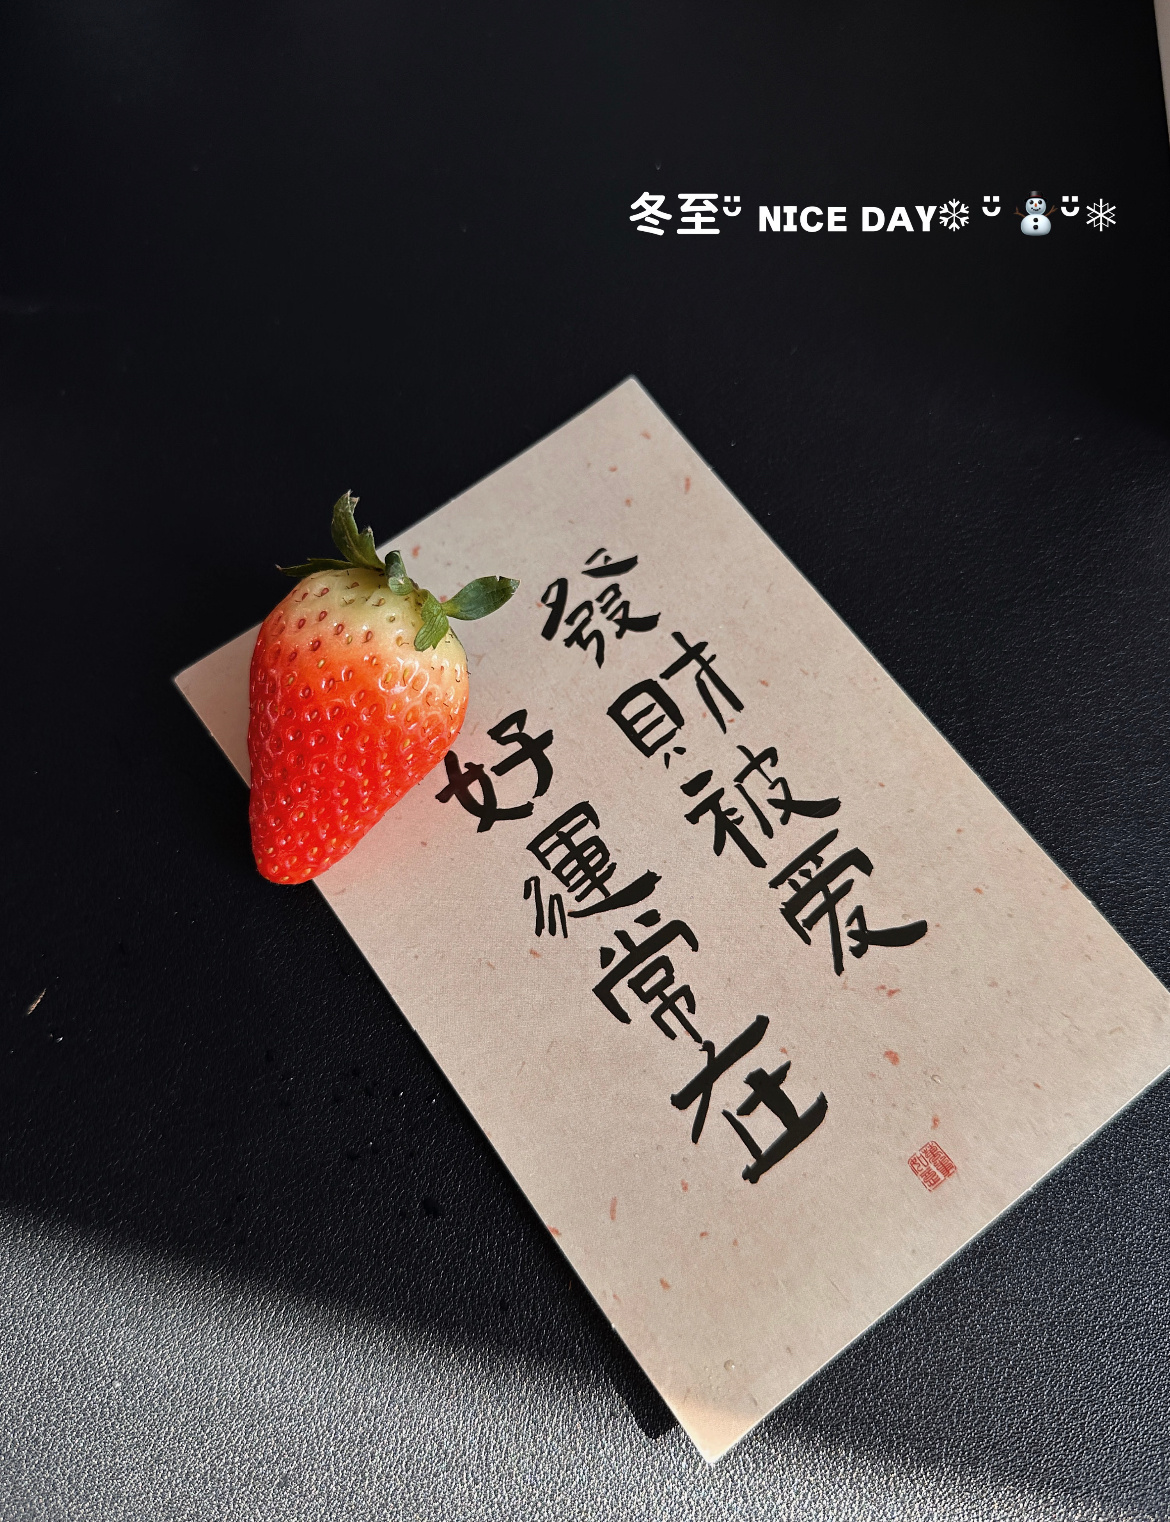 冬至 ᵕ̈ NICE DAY❄ ᵕ̈ ⛄ ᵕ̈ ❄
發財被爱
好運常在